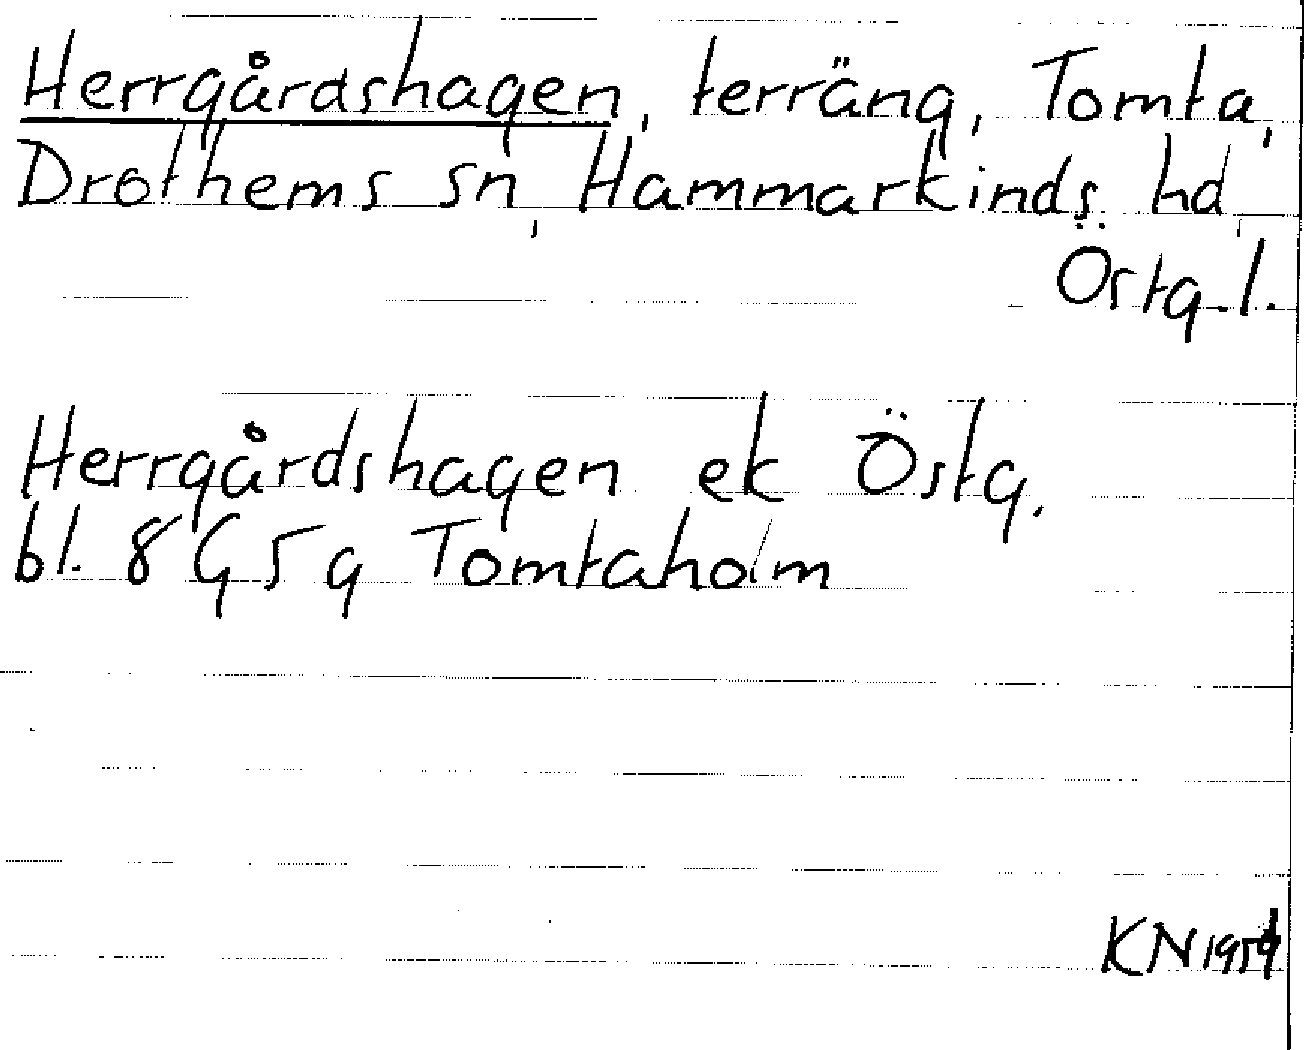 Herrgårdshagen, terräng, Tomta,
Drothems sn, Hammarkinds hd,
Östg. l.
Herrgårdshagen ek Östg.
bl. 8 G 5 g Tomtaholm
KN 1954